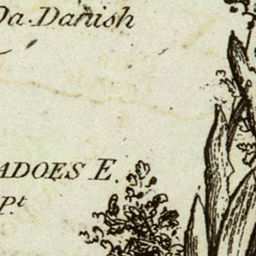 Da.Danish
ADOES E.
pt